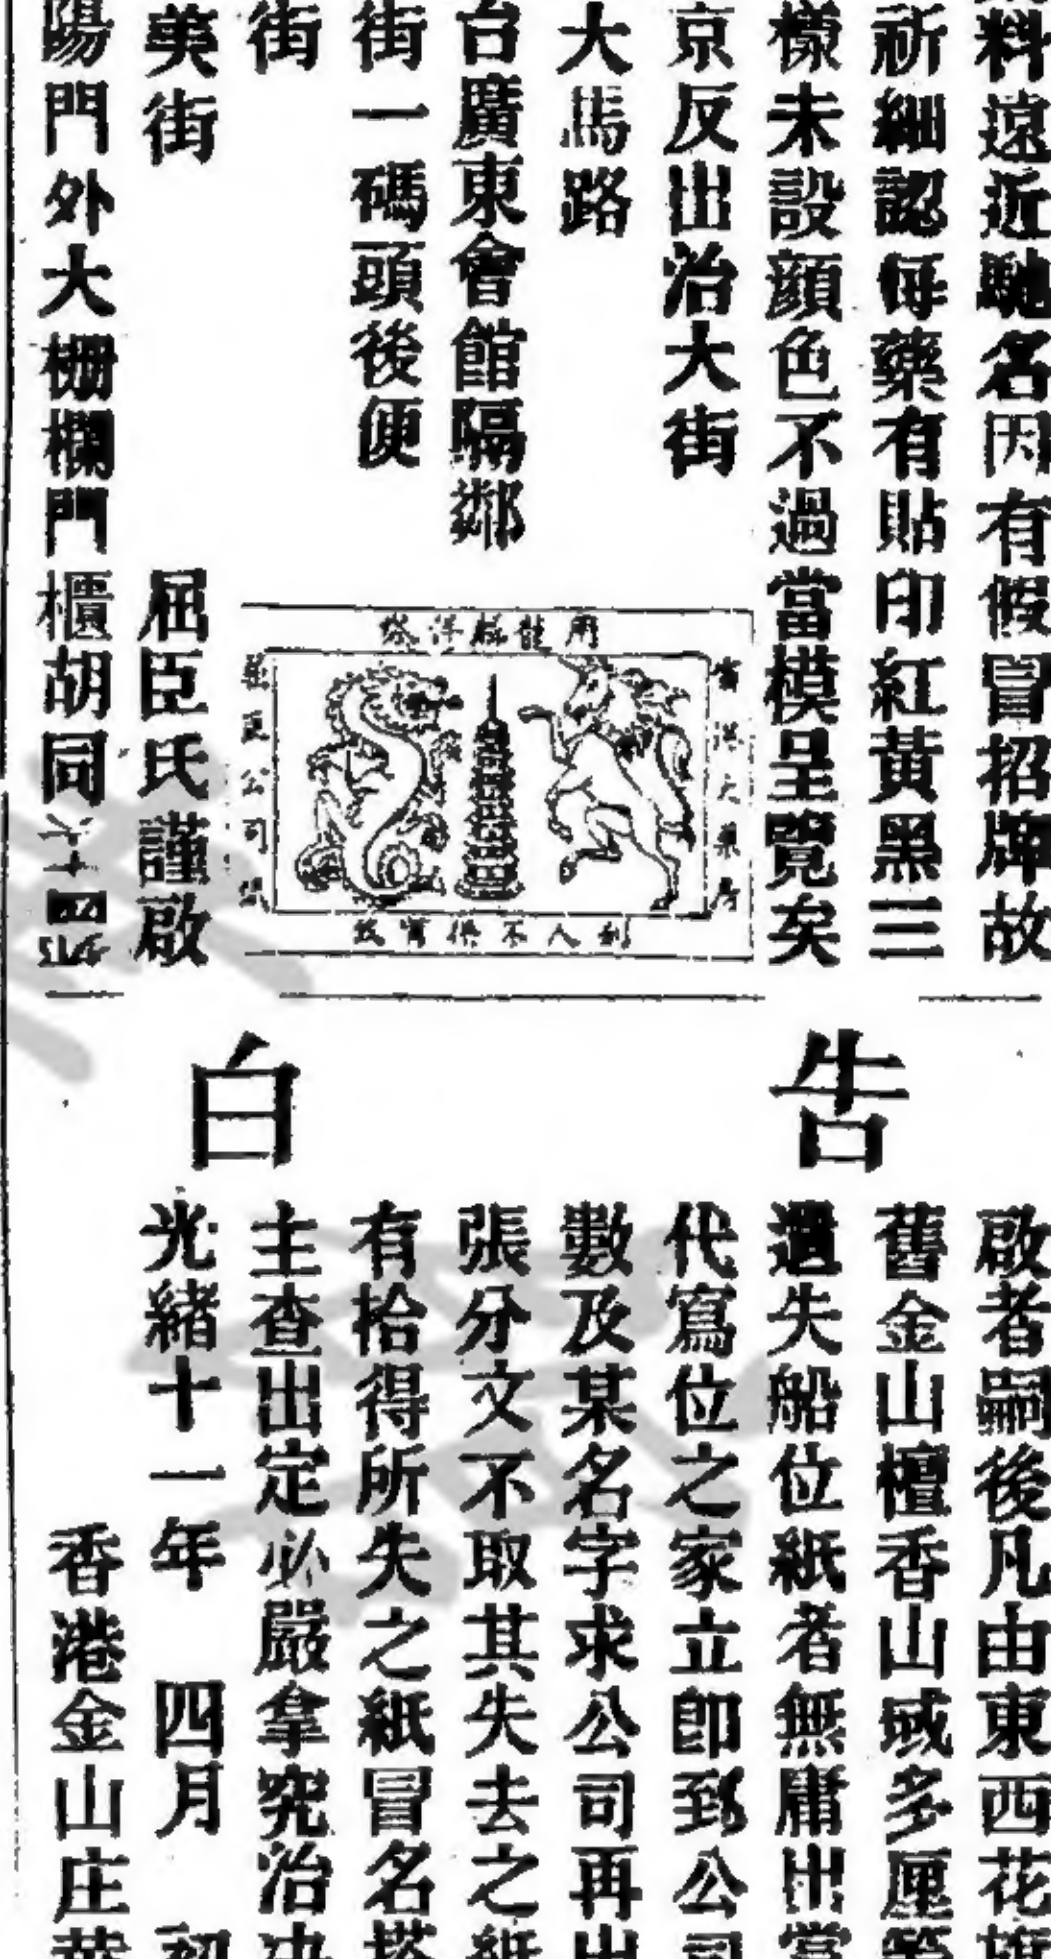 料遠近馳名因有假冒招牌故
祈細認每藥有貼印紅黃黑三
樣未設顔色不過當模呈覽矣
京反出治大街
大馬路
台廣東會館隔鄰
街一碼頭後便
街
美街
屈臣氏謹啟
陽門外大柵欄門櫃胡同六十四號
用龍麟洋塔
大藥房
藥區公司
利人不俱實致
告白
啟者嗣後凡由東西花旗
舊金山檀香山或多厘等
遺失船位紙者無庸出當
代寫位之家立即到公司
數及某名字求公司再出
張分文不取其失去之紙
有拾得所失之紙冒名搭
主查出定必嚴拿究治决
光緒十一年 四月 初
香港金山庄